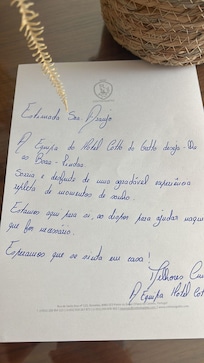 Estimada Sra. Araújo
A Equipa do Hotel Colto do Gatto deseja-lhe
as Boas-Vindas.
Sorria e desfrute de uma agradável experiência
repleta de momentos de sonho.
Estamos aqui para si, ao dispor para ajudar naqu
que for necessário.
Esperamos que se sinta em casa!
Melhores Cu
A Equipa Hotel Col